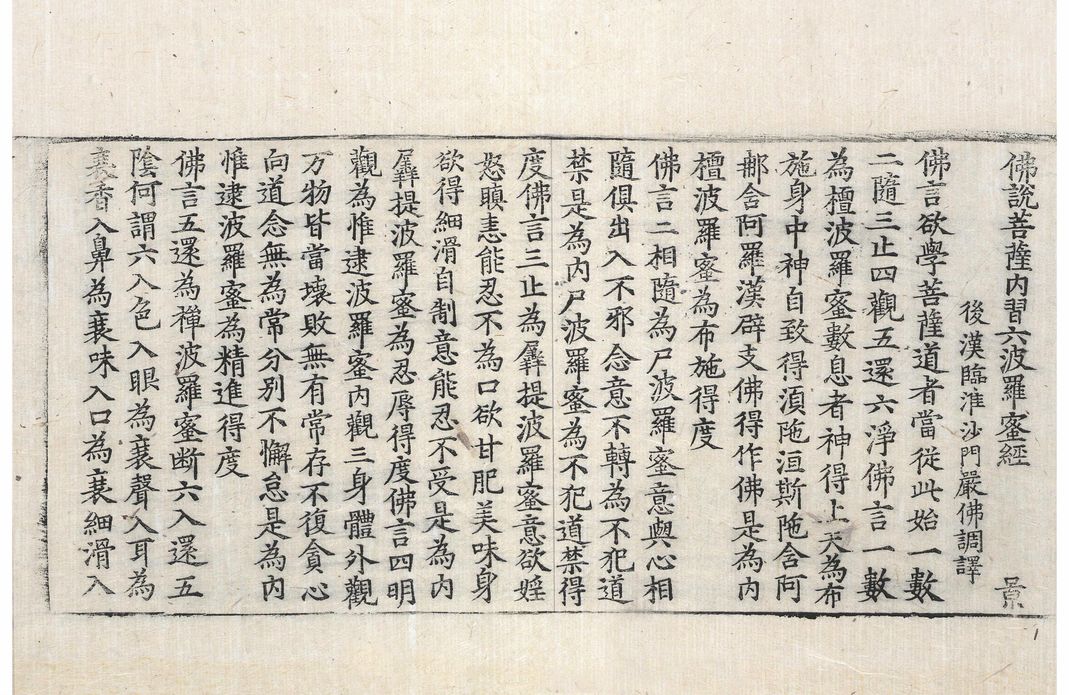 佛說菩薩内習六波羅蜜經　景
後漢臨淮沙門嚴佛調譯
佛言欲學菩薩道者當從此始一數
二隨三止四觀五還六淨佛言一數
為檀波羅蜜數息者神得上天為布
施身中神自致得湏陁洹斯陁含阿
那含阿羅漢辟支佛得作佛是為内
檀波羅蜜為布施得度
佛言二相隨為尸波羅蜜意與心相
隨俱出入不邪念意不轉為不犯道
禁是為内尸波羅蜜為不犯道禁得
度佛言三止為羼提波羅蜜意欲婬
怒瞋恚能忍不為口欲甘肥美味身
欲得細滑自制意能忍不受是為内
羼提波羅蜜為忍辱得度佛言四明
觀為惟逮波羅蜜内觀三身體外觀
万物皆當壞敗無有常存不復貪心
向道念無為常分别不懈怠是為内
惟逮波羅蜜為精進得度
佛言五還為禪波羅蜜断六入還五
陰何謂六入色入眼為衰聲入耳為
衰香入鼻為衰味入口為衰細滑入
1